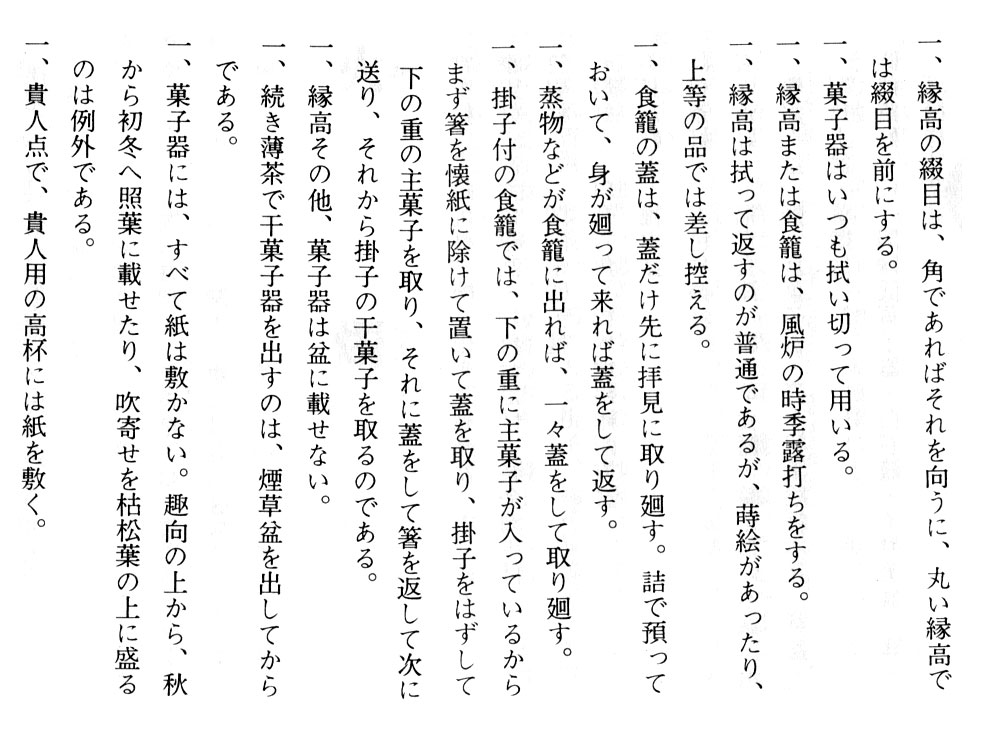 一、縁高の綴目は、角であればそれを向うに、丸い縁高で
は綴目を前にする。
一、菓子器はいつも拭い切って用いる。
一、縁高または食籠は、風炉の時季露打ちをする。
一、縁高は拭って返すのが普通であるが、蒔絵があったり、
上等の品では差し控える。
一、食籠の蓋は、蓋だけ先に拝見に取り廻す。詰で預って
おいて、身が廻って来れば蓋をして返す。
一、蒸物などが食籠に出れば、一々蓋をして取り廻す。
一、掛子付の食籠では、下の重に主菓子が入っているから
まず箸を懐紙に除けて置いて蓋を取り、掛子をはずして
下の重の主菓子を取り、それに蓋をして箸を返して次に
送り、それから掛子の干菓子を取るのである。
一、縁高その他、菓子器は盆に載せない。
一、続き薄茶で干菓子器を出すのは、煙草盆を出してから
である。
一、菓子器には、すべて紙は敷かない。趣向の上から、秋
から初冬へ照葉に載せたり、吹寄せを枯松葉の上に盛る
のは例外である。
一、貴人点で、貴人用の高杯には紙を敷く。